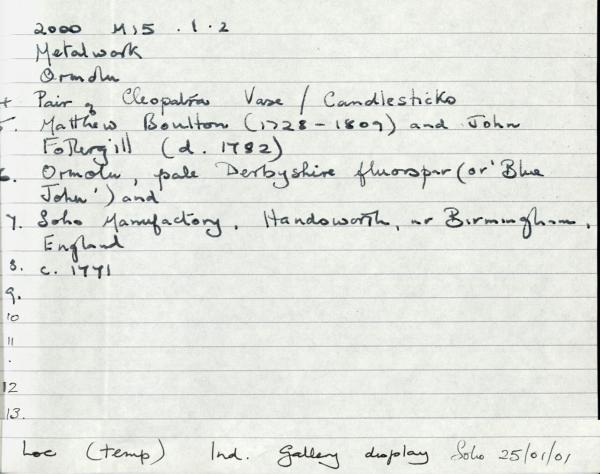 2000 M15 .1.2
Metalwork
Ormolu
4 Pair of Cleopatra Vase / Candlesticks
5. Matthew Boulton (1728-1809) and John
Fothergill (d. 1782)
6. Ormolu, pale Derbyshire fluorspar (or 'Blue
John') and
7. Soho Manufactory, Handsworth, nr Birmingham,
England
8. c. 1771
9.
10
11
.
12
13.
Loc (temp) Ind. Gallery display Soho 25/01/01